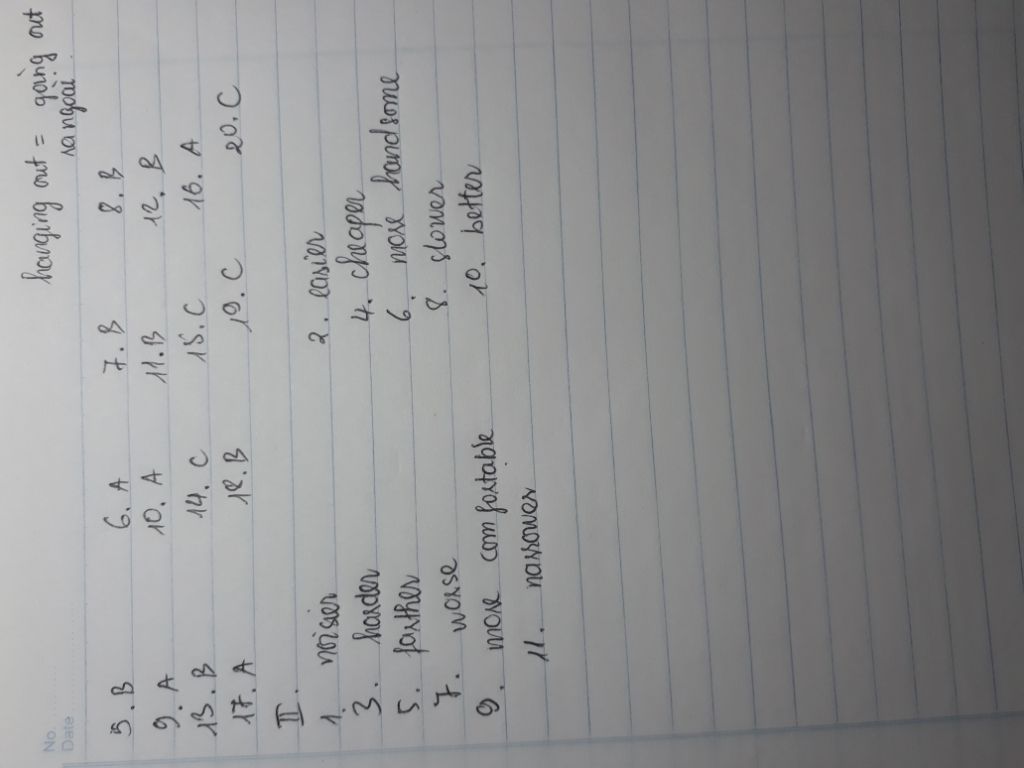 hanging out = going out
ra ngoài.
No.
Date
5. B 6. A 7. B 8. B
9. A 10. A 11.B 12. B
13. B 14. C 15.C 16. A
17. A 18. B 19. C 20. C
II.
1. noisier 2. easier
3. harder 4. cheaper
5. farther 6. more handsome
7. worse 8. slower
9. more comfortable 10. better
11. narrower